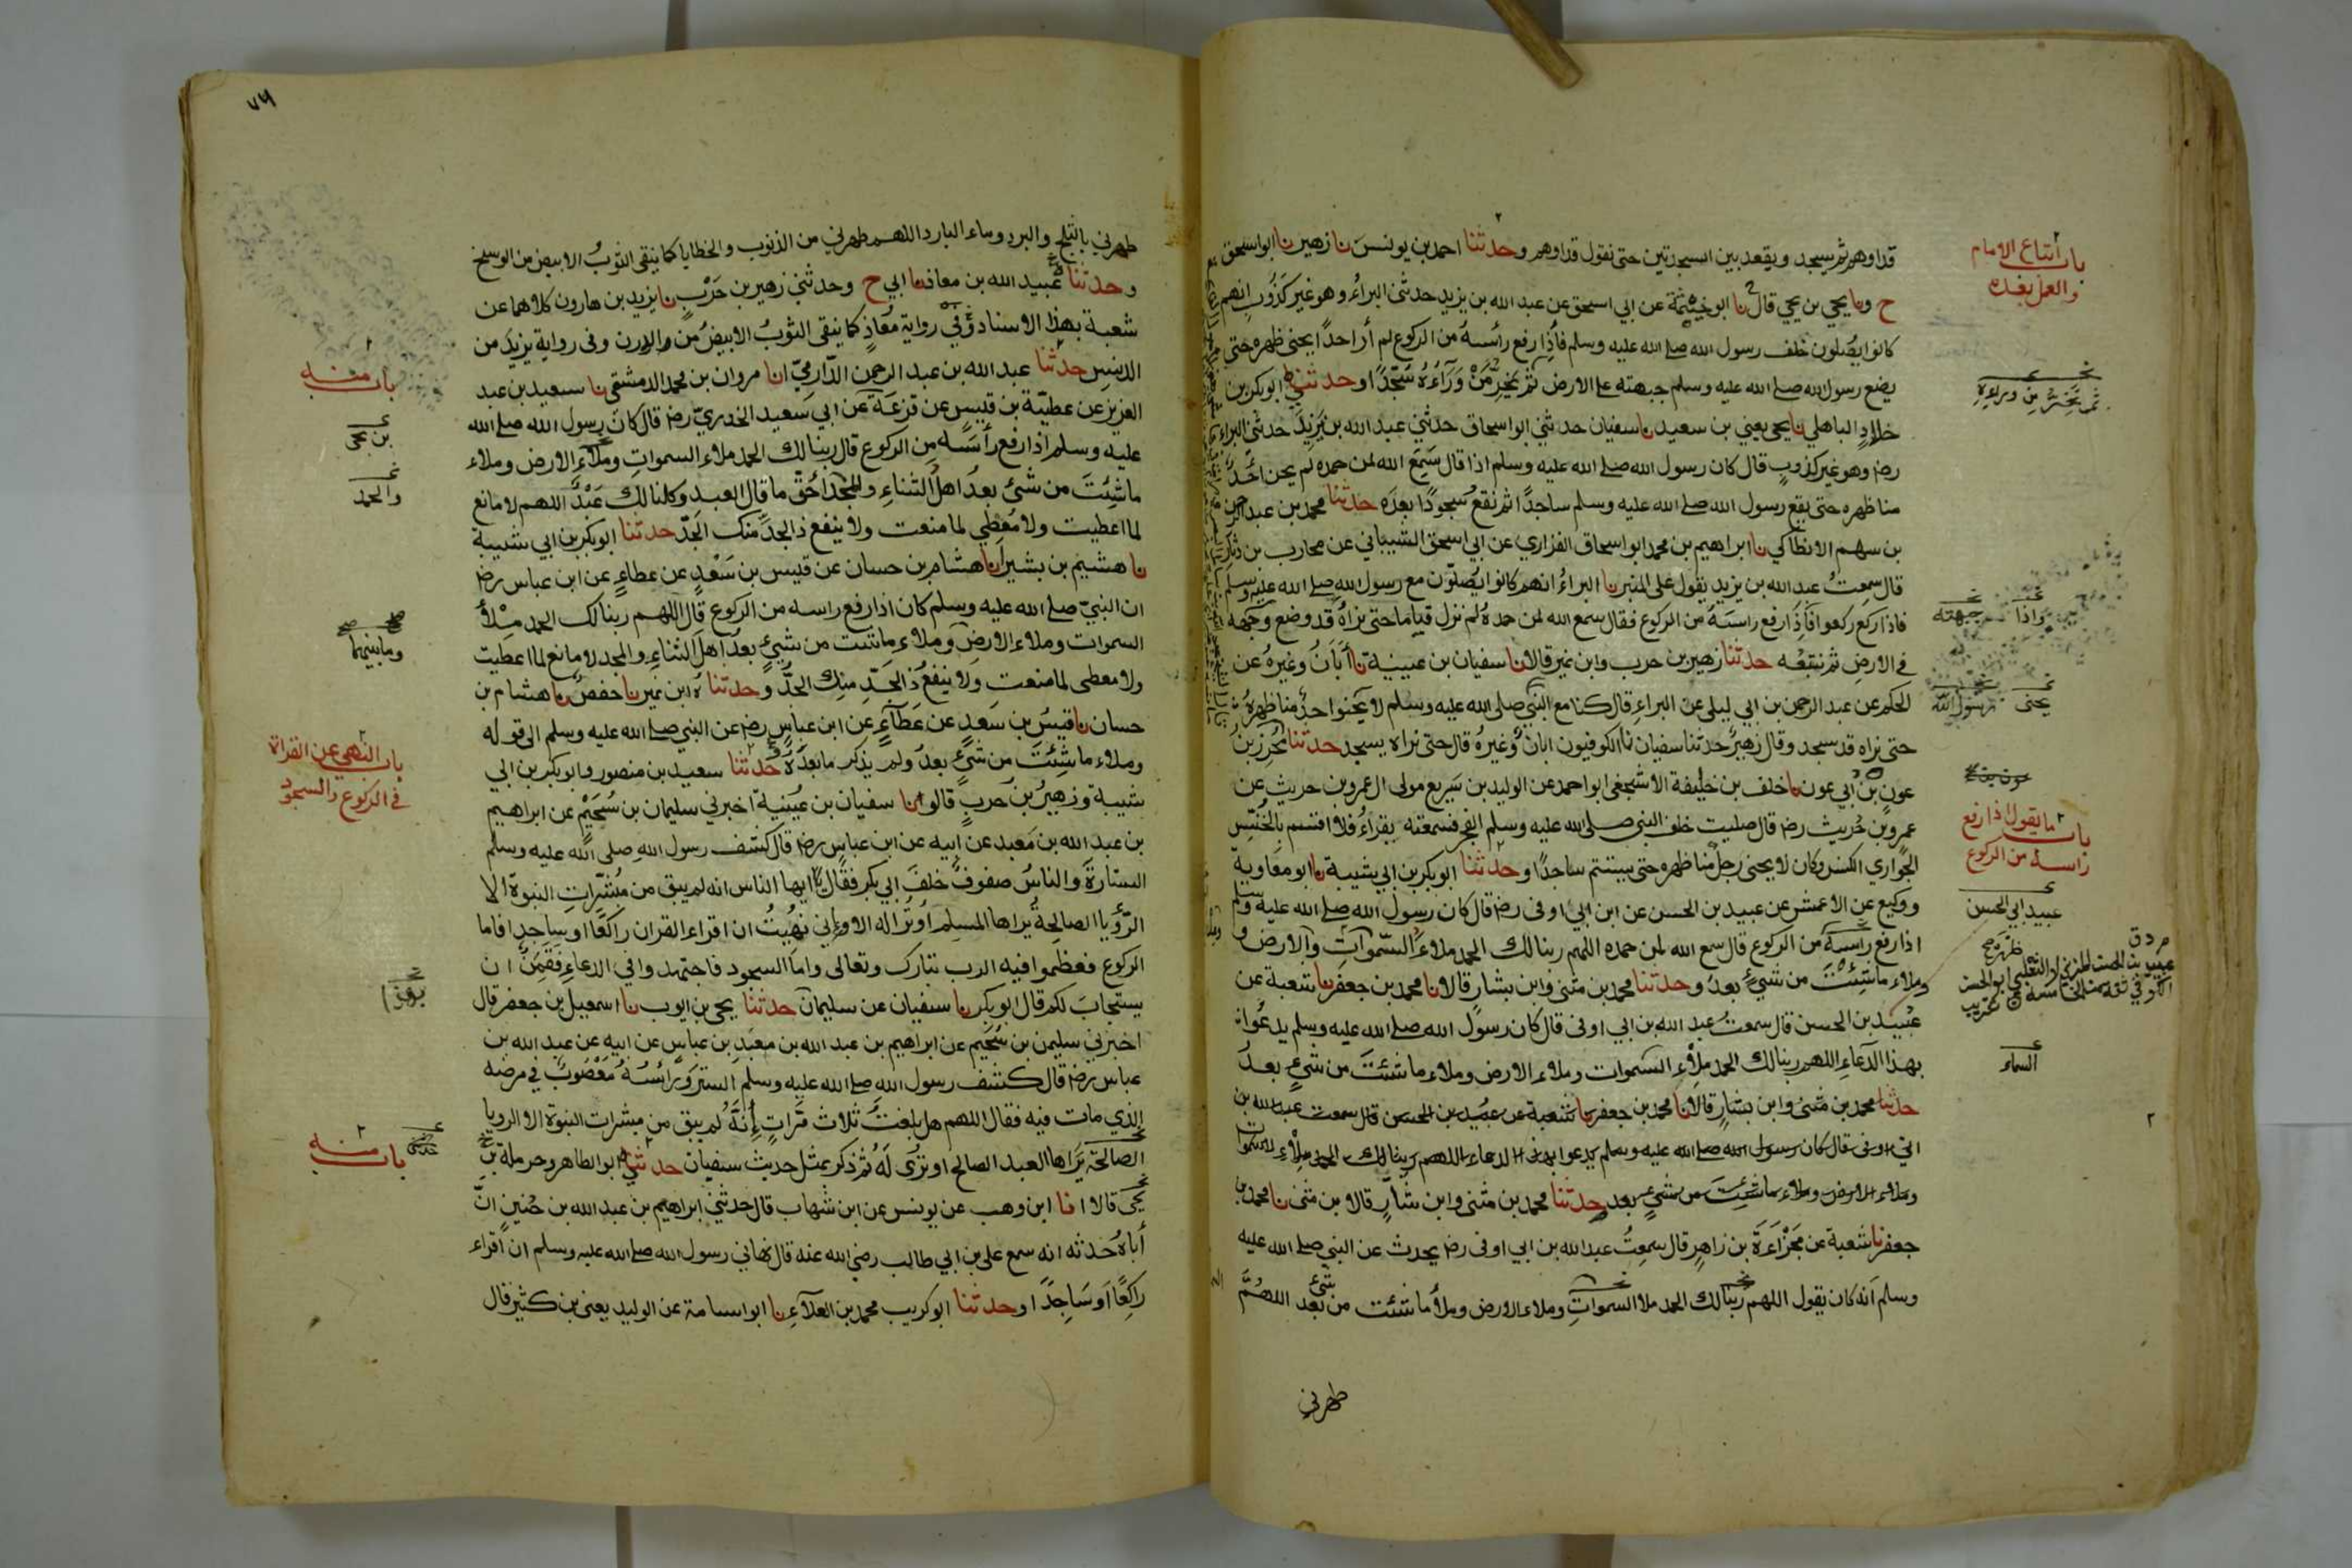 باب اتباع الامام
والعمل بعده
قد اوهم ثم يسجد ويقعد بين السجدتين حتى نقول قد اوهم وحدثنا احمد بن يونس نا زهير نا ابو اسحق
ح ونا يحيى بن يحيى قال نا ابو خيثمة عن ابي اسحق عن عبد الله بن يزيد حدثنى البراء وهو غير كذوب انهم
كانوا يصلون خلف رسول الله صلى الله عليه وسلم فاذا رفع رأسه من الركوع لم أر احدا يحنى ظهره حتى
يضع رسول الله صلى الله عليه وسلم جبهته على الارض ثم يخر من وراءه سجدا وحدثني ابو بكر بن
خلاد الباهلي نا يحيى يعني بن سعيد نا سفيان حدثني ابو اسحاق حدثني عبد الله بن يزيد حدثنى البراء
رضـ وهو غير كذوب قال كان رسول الله صلى الله عليه وسلم اذا قال سمع الله لمن حمده لم يحن احد
منا ظهره حتى يقع رسول الله صلى الله عليه وسلم ساجدا ثم نقع سجودا بعده حدثنا محمد بن عبد الرحمن
بن سهم الانطاكي نا ابراهيم بن محمد ابو اسحاق الفزاري عن ابي اسحق الشيباني عن محارب بن دثار
قال سمعت عبد الله بن يزيد يقول على المنبر نا البراء انهم كانوا يصلون مع رسول الله صلى الله عليه وسلم
واذا
جبهته
فاذا ركع ركعوا فاذا رفع راسه من الركوع فقال سمع الله لمن حمده لم نزل قياما حتى نراه قد وضع وجهه
في الارض ثم نتبعه حدثنا زهير بن حرب وابن نمير قالا نا سفيان بن عيينة نا أبان وغيره عن
يحنى
رسول الله
الحكم عن عبد الرحمن بن ابي ليلى عن البراء قال كنا مع النبي صلى الله عليه وسلم لا يحنوا احد منا ظهره
حتى نراه قد سجد وقال زهير حدثنا سفيان نا الكوفيون ابان وغيره قال حتى نراه يسجد حدثنا محرز بن
عون بن ابي عون نا خلف بن خليفة الاشجعى ابو احمد عن الوليد بن سريع مولى ال عمرو بن حريث عن
باب ما يقول اذا رفع
راسه من الركوع
عمرو بن حريث رضـ قال صليت خلف النبي صلى الله عليه وسلم الفجر فسمعته يقراء فلا اقسم بالخنس
الجواري الكنس وكان لا يحنى رجل منا ظهره حتى يستتم ساجدا وحدثنا ابو بكر بن ابي شيبة نا ابو معاوية
عبيد ابي الحسن
ووكيع عن الاعمش عن عبيد بن الحسن عن ابن ابي اوفى رضـ قال كان رسول الله صلى الله عليه وسلم
اذا رفع رأسه من الركوع قال سمع الله لمن حمده اللهم ربنا لك الحمد ملاء السموات والارض و
وملاء ما شئت من شيء بعد وحدثنا محمد بن مثنى وابن بشار قالا نا محمد بن جعفر نا شعبة عن
عبيد بن الحسن قال سمعت عبد الله بن ابي اوفى قال كان رسول الله صلى الله عليه وسلم يدعوا
السماء
بهذا الدعاء اللهم ربنا لك الحمد ملاء السموات وملاء الارض وملاء ما شئت من شيء بعد
حدثنا محمد بن مثنى وابن بشار قالا نا محمد بن جعفر نا شعبة عن عبيد بن الحسن قال سمعت عبد الله بن
ابي اوفى قال كان رسول الله صلى الله عليه وسلم يدعوا بهذا الدعاء اللهم ربنا لك الحمد ملاء السموات
وملاء الارض وملاء ما شئت من شيء بعد حدثنا محمد بن مثنى وابن بشار قالا بن مثنى نا محمد بن
جعفر نا شعبة عن مجزاءة بن زاهر قال سمعت عبد الله بن ابي اوفى رضـ يحدث عن النبي صلى الله عليه
وسلم انه كان يقول اللهم ربنا لك الحمد ملا السموات وملاء الارض وملأ ما شئت من شيء بعد اللهم
طهرني
٧٤
طهرني بالثلج والبرد وماء البارد اللهم طهرني من الذنوب والخطايا كما ينقى الثوب الابيض من الوسخ
وحدثنا عبيد الله بن معاذ نا ابي ح وحدثني زهير بن حرب نا يزيد بن هارون كلاهما عن
شعبة بهذا الاسناد وفي رواية معاذ كما ينقى الثوب الابيض من الدرن وفى رواية يزيد من
باب منه
الدنس حدثنا عبد الله بن عبد الرحمن الدارمي انا مروان بن محمد الدمشقى نا سعيد بن عبد
العزيز عن عطية بن قيس عن قزعة عن ابي سعيد الخدري رضـ قال كان رسول الله صلى الله
بن يحيى
عليه وسلم اذا رفع رأسه من الركوع قال ربنا لك الحمد ملاء السموات وملاء الارض وملاء
والحمد
ما شئت من شئ بعد اهل الثناء والمجد احق ما قال العبد وكلنا لك عبد اللهم لا مانع
لما اعطيت ولا معطي لما منعت ولا ينفع ذا الجد منك الجد حدثنا ابو بكر بن ابي شيبة
نا هشيم بن بشير انا هشام بن حسان عن قيس بن سعد عن عطاء عن ابن عباس رضـ
ان النبي صلى الله عليه وسلم كان اذا رفع راسه من الركوع قال اللهم ربنا لك الحمد ملأ
وما بينهما
السموات وملاء الارض وملاء ما شئت من شيء بعد اهل الثناء والمجد لا مانع لما اعطيت
ولا معطى لما منعت ولا ينفع ذا الجد منك الجد وحدثناه ابن نمير نا حفص نا هشام بن
حسان نا قيس بن سعد عن عطاء عن ابن عباس رضـ عن النبي صلى الله عليه وسلم الى قوله
باب النهى عن القراة
في الركوع والسجود
وملاء ما شئت من شئ بعد ولم يذكر ما بعده حدثنا سعيد بن منصور وابو بكر بن ابي
شيبة وزهير بن حرب قالوا نا سفيان بن عيينة اخبرني سليمان بن سحيم عن ابراهيم
بن عبد الله بن معبد عن ابيه عن ابن عباس رضـ قال كشف رسول الله صلى الله عليه وسلم
الستارة والناس صفوف خلف ابي بكر فقال يا ايها الناس انه لم يبق من مبشرات النبوة الا
الرؤيا الصالحة يراها المسلم او ترا له الا واني نهيت ان اقراء القران راكعا او ساجدا فاما
الركوع فعظموا فيه الرب تبارك وتعالى واما السجود فاجتهدوا في الدعاء فقمن ان
يستجاب لكم قال ابو بكر نا سفيان عن سليمان حدثنا يحيى بن ايوب نا اسمعيل بن جعفر قال
اخبرني سليمن بن سحيم عن ابراهيم بن عبد الله بن معبد بن عباس عن ابيه عن عبد الله بن
عباس رضـ قال كشف رسول الله صلى الله عليه وسلم الستر وراسه معصوب في مرضه
الذي مات فيه فقال اللهم هل بلغت ثلاث مرات انه لم يبق من مبشرات النبوة الا الرويا
باب منه
الصالحة يراها العبد الصالح او ترى له ثم ذكر بمثل حديث سفيان حدثني ابو الطاهر وحرملة بن
يحيى قالا انا ابن وهب عن يونس عن ابن شهاب قال حدثني ابراهيم بن عبد الله بن حنين ان
أباه حدثه انه سمع على بن ابي طالب رضي الله عنه قال نهاني رسول الله صلى الله عليه وسلم ان اقراء
راكعا او ساجدا وحدثنا ابو كريب محمد بن العلاء نا ابو اسامة عن الوليد يعنى بن كثير قال